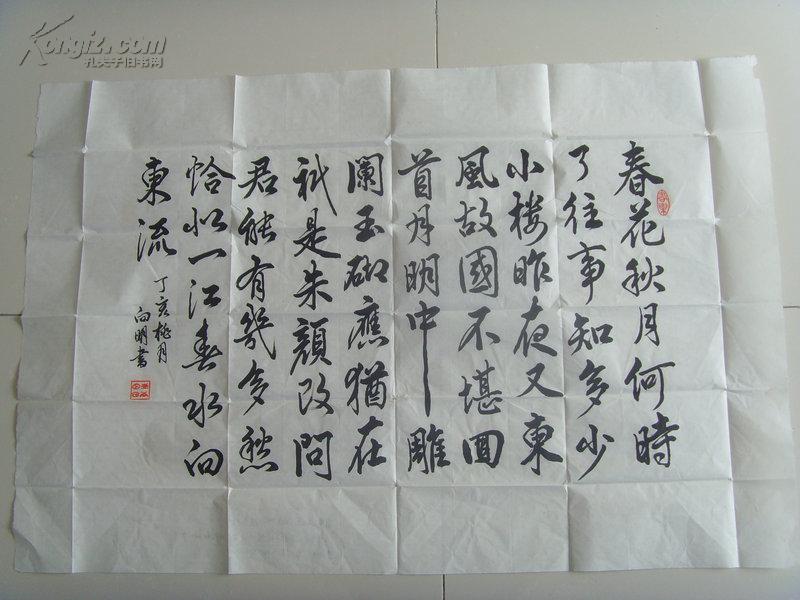 春花秋月何時
了往事知多少
小楼昨夜又東
風故國不堪回
首月明中雕
闌玉砌應猶在
祇是朱顔改問
君能有幾多愁
恰似一江春水向
東流
丁亥桃月
向明書
Kongfz.com
孔夫子旧书网